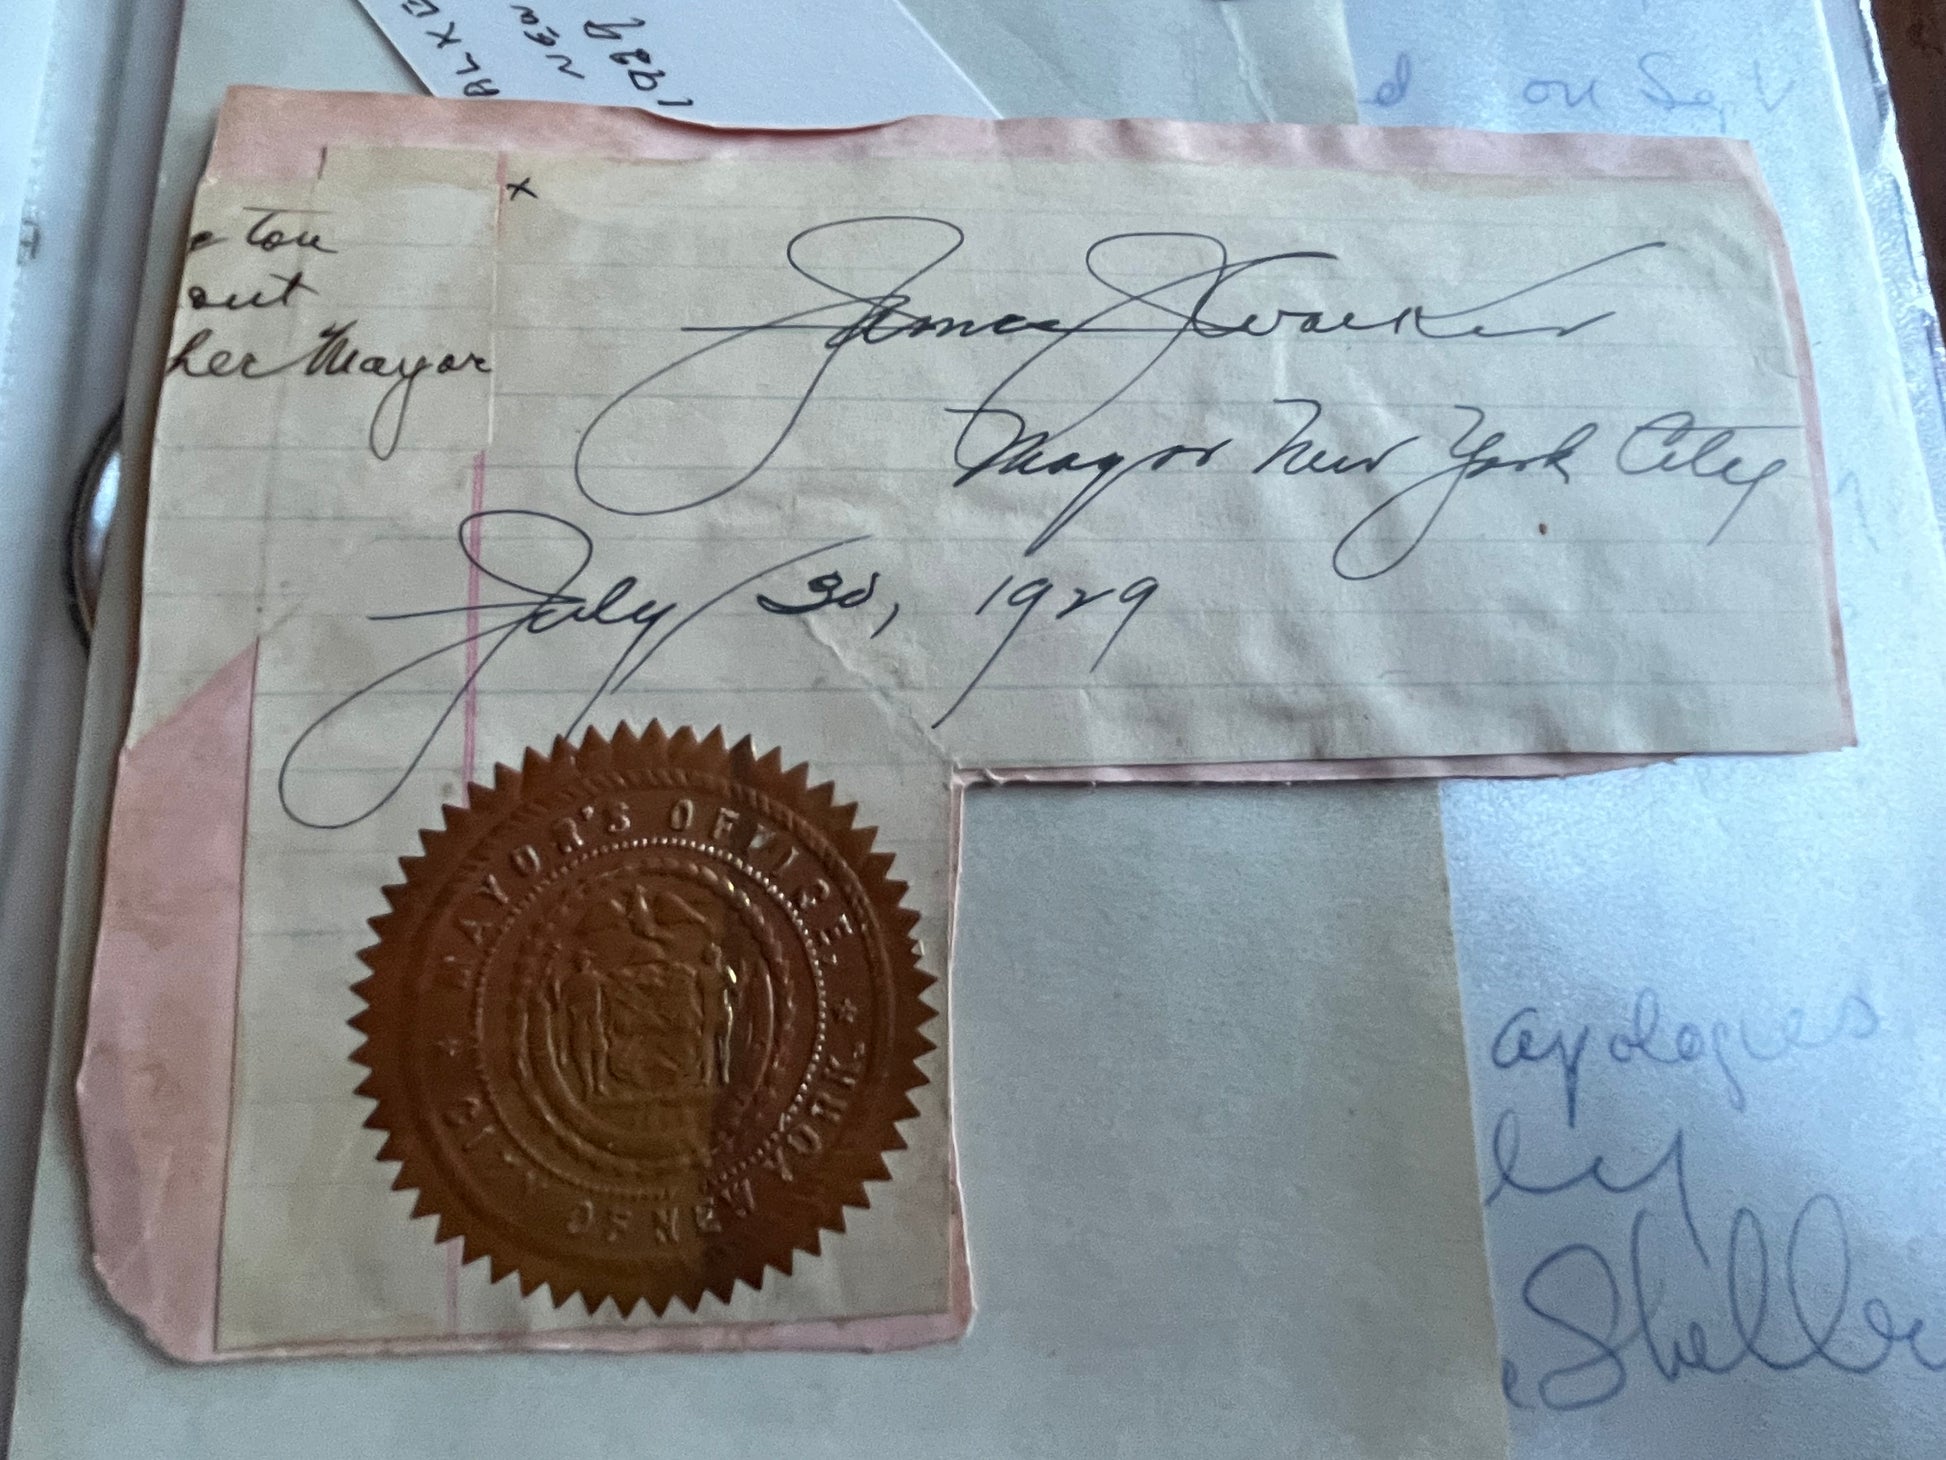 NEW
1929
on
x
tou
out
her Mayor
James J Walker
Mayor New York City
July 30, 1929
MAYOR'S OFFICE
OF NEW YORK.
apologies
ly